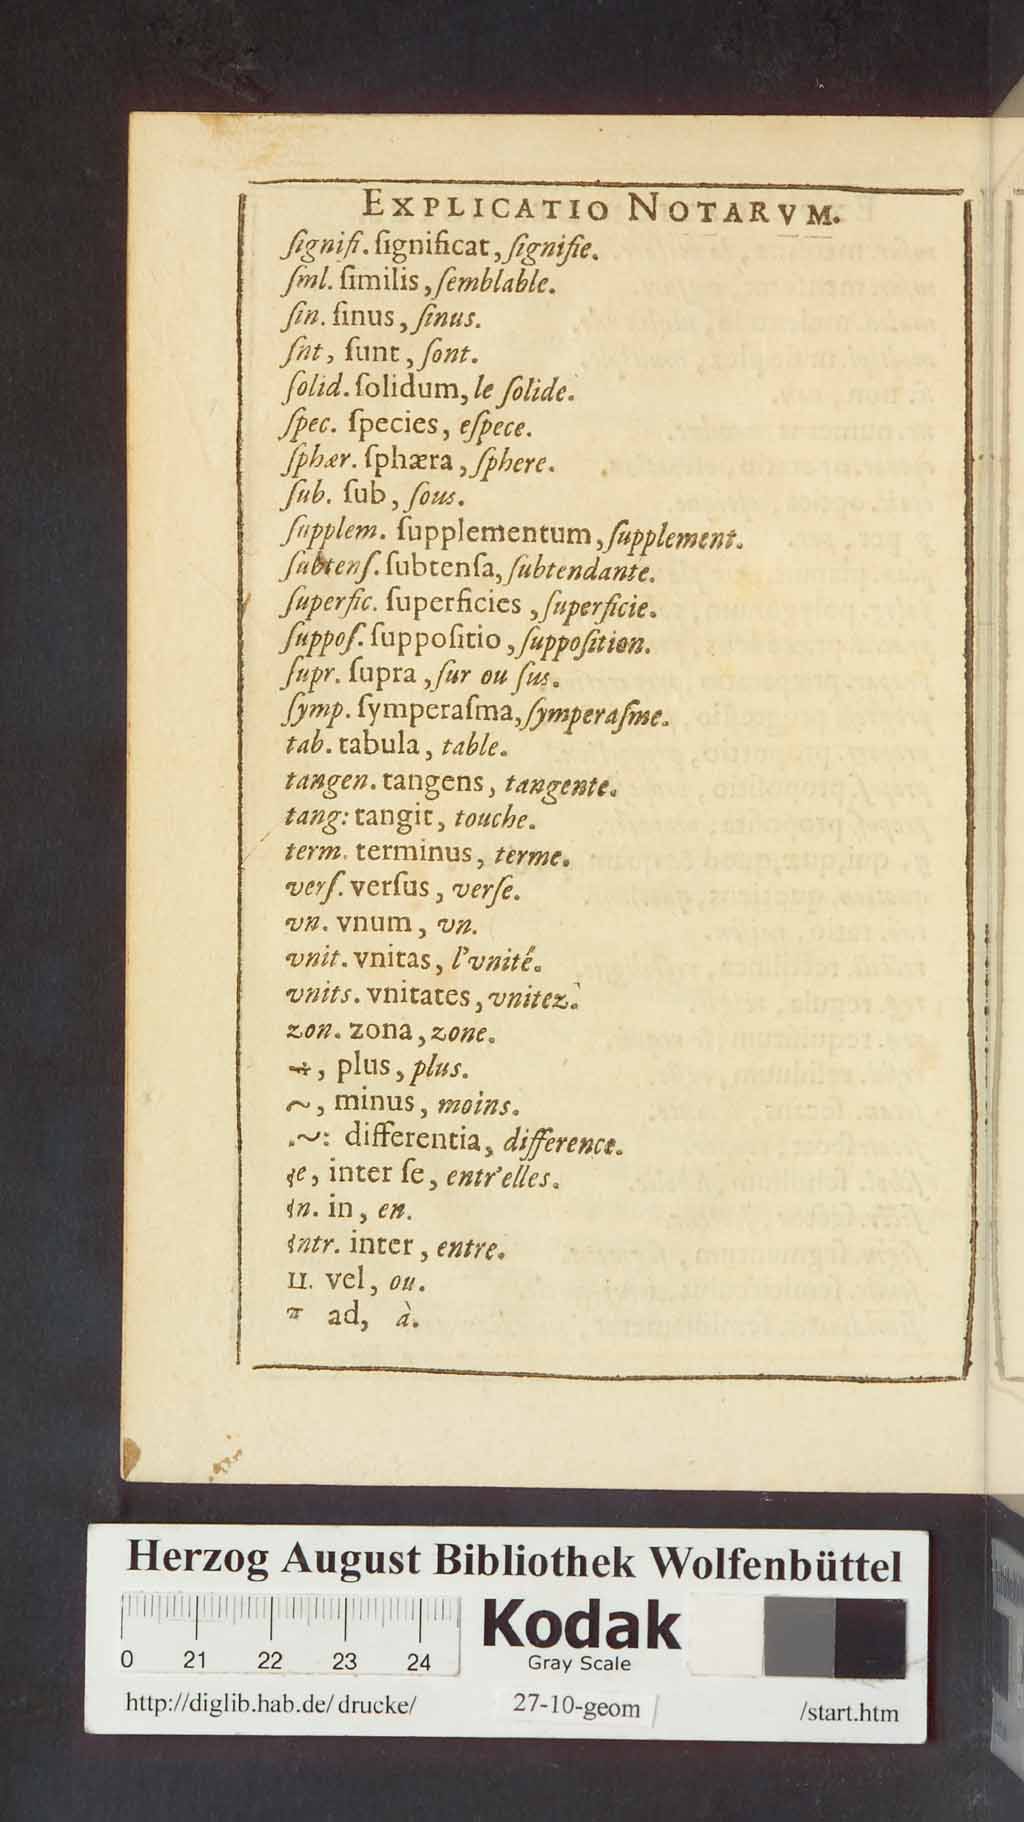 EXPLICATIO NOTARVM.
ſignifi. ſignificat, ſignifie.
ſml. ſimilis, ſemblable.
ſin. ſinus, ſinus.
ſnt, ſunt, ſont.
ſolid. ſolidum, le ſolide.
ſpec. ſpecies, eſpece.
ſphær. ſphæra, ſphere.
ſub. ſub, ſous.
ſupplem. ſupplementum, ſupplement.
ſubtenſ. ſubtenſa, ſubtendante.
ſuperfic. ſuperficies, ſuperficie.
ſuppoſ. ſuppoſitio, ſuppoſition.
ſupr. ſupra, ſur ou ſus.
ſymp. ſymperaſma, ſymperaſme.
tab. tabula, table.
tangen. tangens, tangente.
tang: tangit, touche.
term. terminus, terme.
verſ. verſus, verſe.
vn. vnum, vn.
vnit. vnitas, l'vnité.
vnits. vnitates, vnitez.
zon. zona, zone.
+, plus, plus.
~, minus, moins.
.~: differentia, difference.
, inter ſe, entr'elles.
in. in, en.
intr. inter, entre.
II. vel, ou.
ad, à.
Herzog August Bibliothek Wolfenbüttel
Kodak
Gray Scale
0 21 22 23 24
http://diglib.hab.de/drucke/ 27-10-geom /start.htm